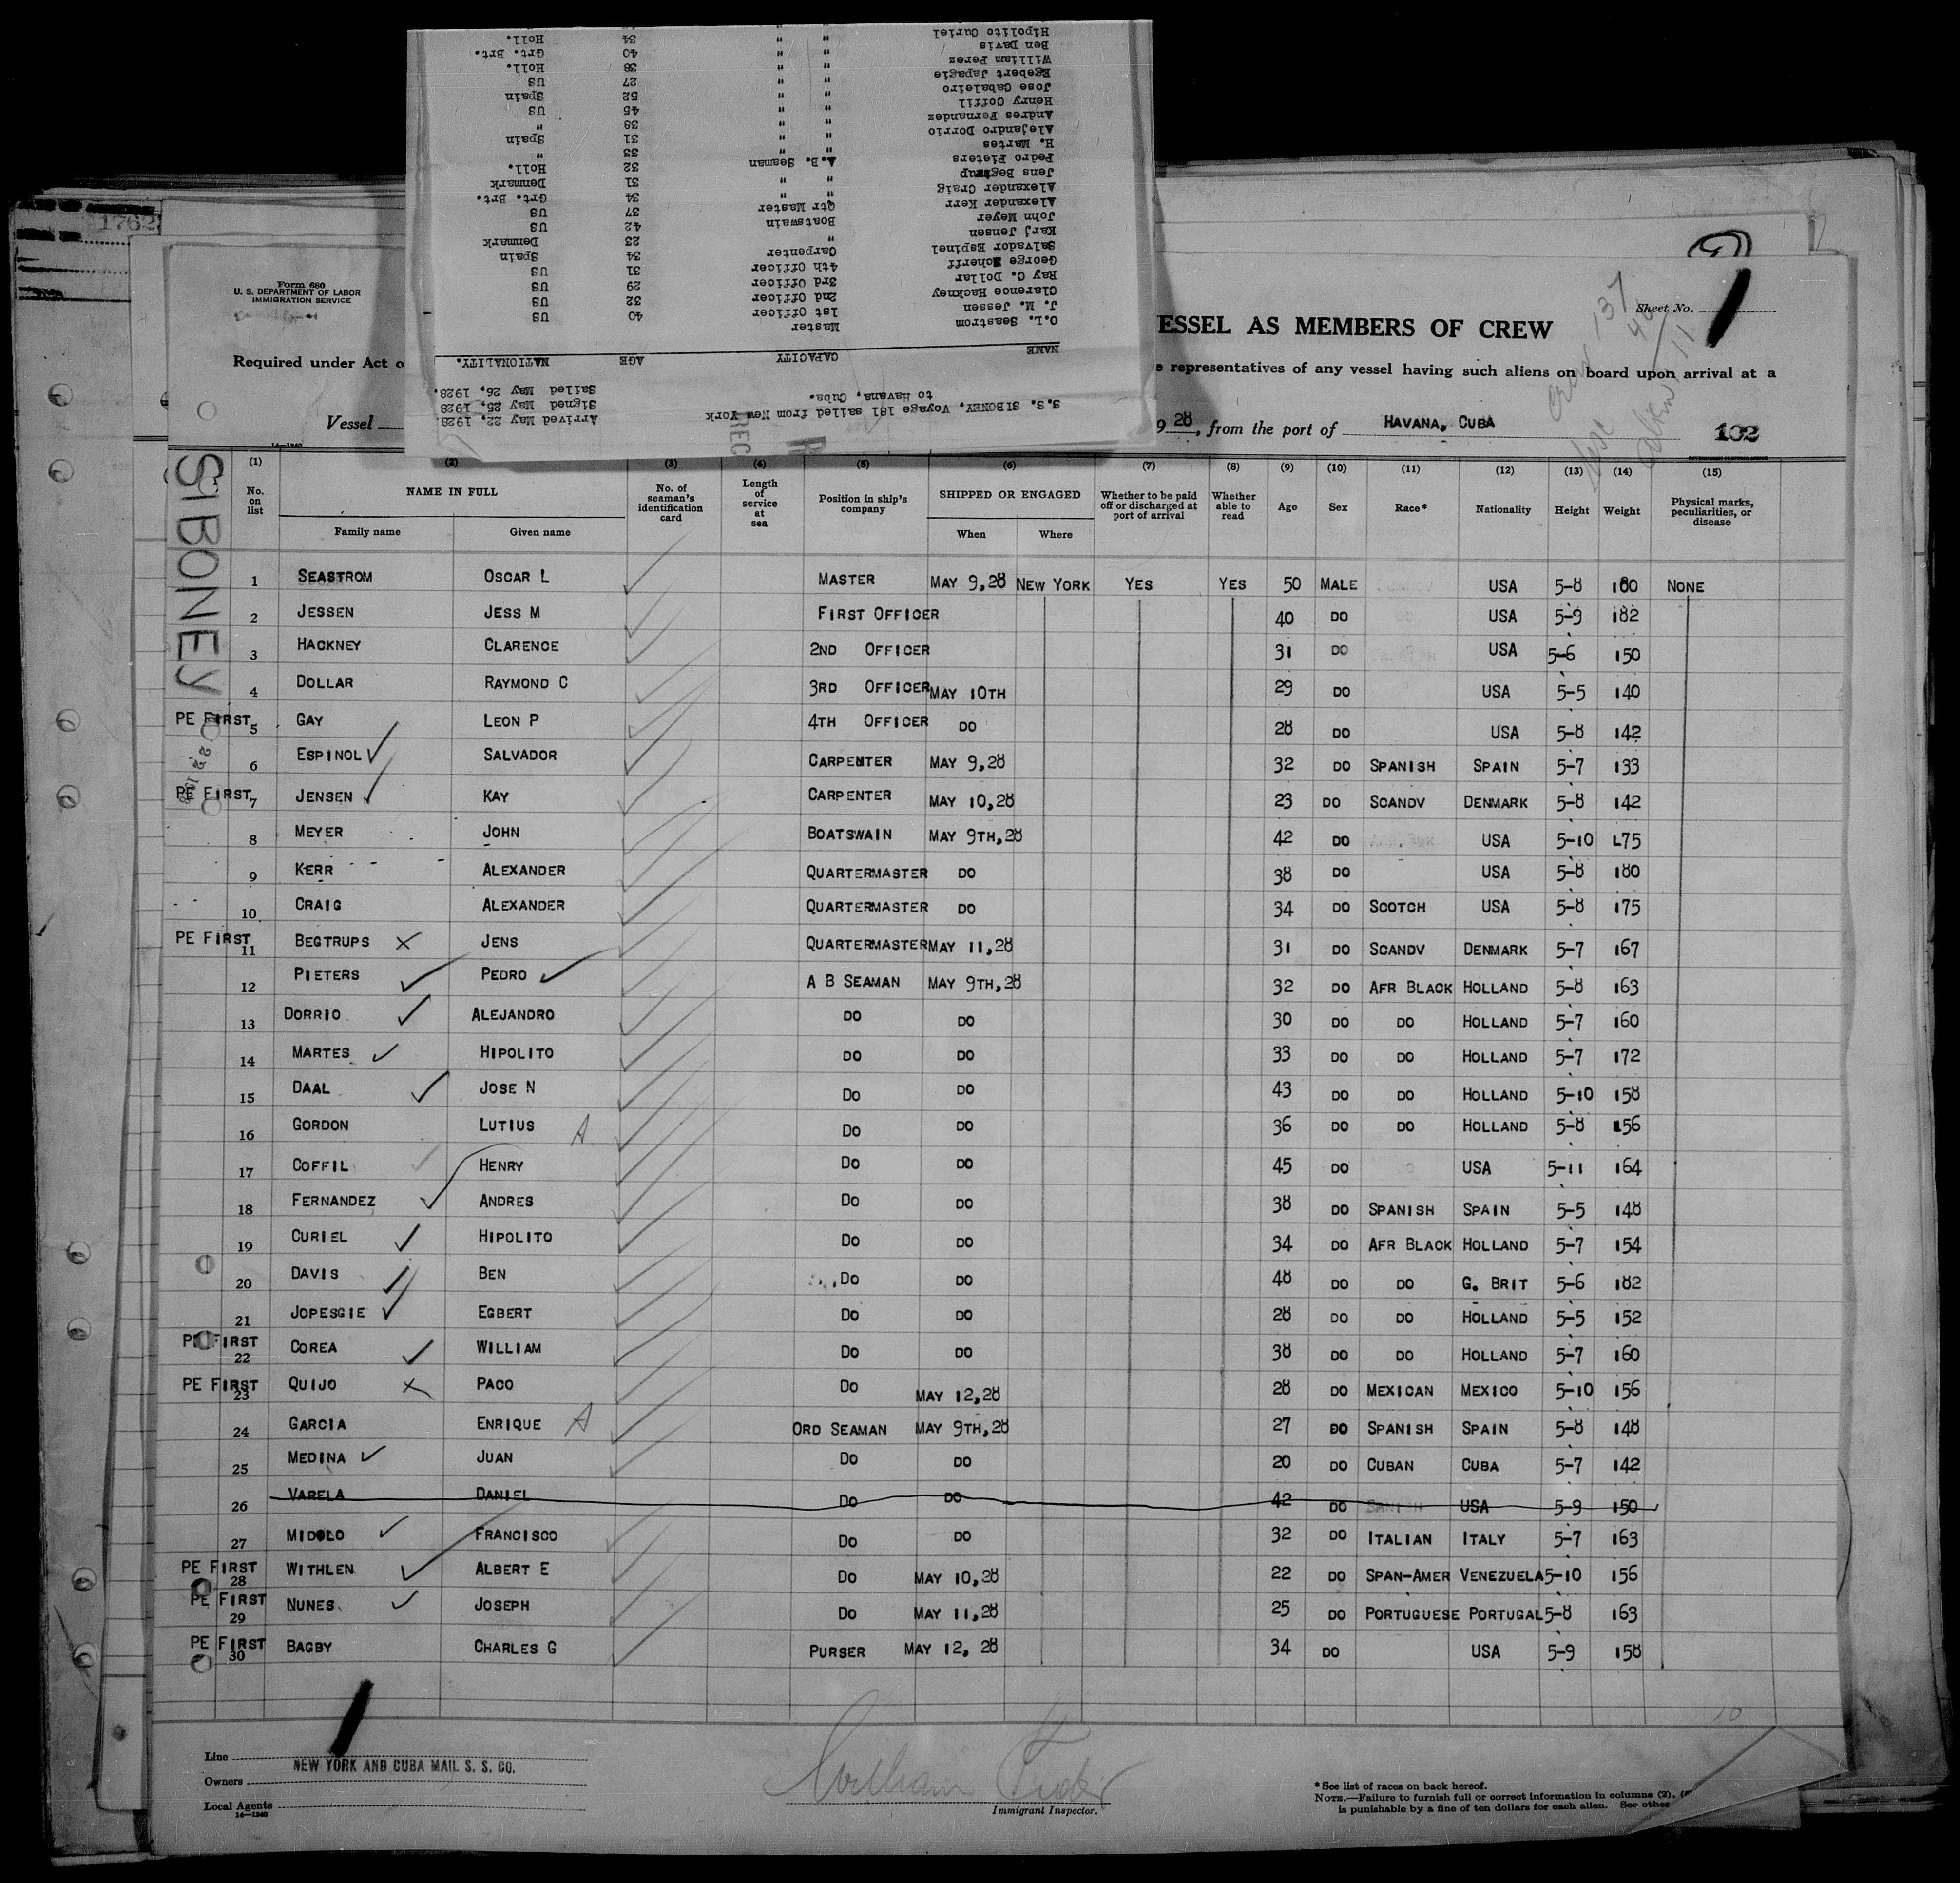 S.S. SIBONEY. Voyage 181 sailed from New York to Havana, Cuba.
Arrived May 22, 1928.
Signed May 25, 1928
Sailed May 26, 1928.
NAME CAPACITY AGE NATIONALITY.
O.L. Seastrom Master
J. M. Jessen 1st Officer 40 US
Clarence Hackney 2nd Officer 32 US
Ray C. Dollar 3rd Officer 29 US
George Scherff 4th Officer 31 US
Salvador Espinel Carpenter 34 Spain
Karj Jensen " 23 Denmark
John Meyer Boatswain 42 US
Alexander Kerr Qtr Master 37 US
Alexander Craig " " 34 Grt. Brt.
Jens Begtrup " " 31 Denmark
Pedro Pieters A.B. Seaman 32 Holl.
H. Martes " " 33 "
Alejandro Dorrio " " 31 Spain
Andres Fernandez " " 38 "
Henry Coffil " " 45 US
Jose Cabaleiro " " 52 Spain
Egebert Japagie " " 27 US
William Perez " " 38 Holl.
Ben Davis " " 40 Grt. Brt.
Hipolito Curiel " " 34 Holl.
1762
Form 680
U. S. DEPARTMENT OF LABOR
IMMIGRATION SERVICE
Sheet No. 1
VESSEL AS MEMBERS OF CREW
Required under Act o
e representatives of any vessel having such aliens on board upon arrival at a
Vessel
9 28, from the port of HAVANA, CUBA
102
14—1240
SIBONEY
(1) (2) (3) (4) (5) (6) (7) (8) (9) (10) (11) (12) (13) (14) (15)
No. on list NAME IN FULL No. of seaman's identification card Length of service at sea Position in ship's company SHIPPED OR ENGAGED Whether to be paid off or discharged at port of arrival Whether able to read Age Sex Race* Nationality Height Weight Physical marks, peculiarities, or disease
Family name Given name When Where
1 SEASTROM OSCAR L MASTER MAY 9,28 NEW YORK YES YES 50 MALE USA 5-8 180 NONE
2 JESSEN JESS M FIRST OFFICER 40 DO USA 5-9 182
3 HACKNEY CLARENCE 2ND OFFICER 31 DO USA 5-6 150
4 DOLLAR RAYMOND C 3RD OFFICER MAY 10TH 29 DO USA 5-5 140
PE FIRST 5 GAY LEON P 4TH OFFICER DO 28 DO USA 5-8 142
6 ESPINOL SALVADOR CARPENTER MAY 9,28 32 DO SPANISH SPAIN 5-7 133
PE FIRST 7 JENSEN KAY CARPENTER MAY 10,28 23 DO SCANDV DENMARK 5-8 142
8 MEYER JOHN BOATSWAIN MAY 9TH,28 42 DO USA 5-10 175
9 KERR ALEXANDER QUARTERMASTER DO 38 DO USA 5-8 180
10 CRAIG ALEXANDER QUARTERMASTER DO 34 DO SCOTCH USA 5-8 175
PE FIRST 11 BEGTRUPS JENS QUARTERMASTER MAY 11,28 31 DO SCANDV DENMARK 5-7 167
12 PIETERS PEDRO A B SEAMAN MAY 9TH,28 32 DO AFR BLACK HOLLAND 5-8 163
13 DORRIO ALEJANDRO DO DO 30 DO DO HOLLAND 5-7 160
14 MARTES HIPOLITO DO DO 33 DO DO HOLLAND 5-7 172
15 DAAL JOSE N DO DO 43 DO DO HOLLAND 5-10 158
16 GORDON LUTIUS A DO DO 36 DO DO HOLLAND 5-8 156
17 COFFIL HENRY DO DO 45 DO USA 5-11 164
18 FERNANDEZ ANDRES DO DO 38 DO SPANISH SPAIN 5-5 148
19 CURIEL HIPOLITO DO DO 34 DO AFR BLACK HOLLAND 5-7 154
20 DAVIS BEN DO DO 48 DO DO G. BRIT 5-6 182
21 JOPESGIE EGBERT DO DO 28 DO DO HOLLAND 5-5 152
PE FIRST 22 COREA WILLIAM DO DO 38 DO DO HOLLAND 5-7 160
PE FIRST 23 QUIJO PACO DO MAY 12,28 28 DO MEXICAN MEXICO 5-10 156
24 GARCIA ENRIQUE A ORD SEAMAN MAY 9TH,28 27 DO SPANISH SPAIN 5-8 148
25 MEDINA JUAN DO DO 20 DO CUBAN CUBA 5-7 142
26 VARELA DANIEL DO DO 42 DO USA 5-9 150
27 MIDOLO FRANCISCO DO DO 32 DO ITALIAN ITALY 5-7 163
PE FIRST 28 WITHLEN ALBERT E DO MAY 10,28 22 DO SPAN-AMER VENEZUELA 5-10 156
PE FIRST 29 NUNES JOSEPH DO MAY 11,28 25 DO PORTUGUESE PORTUGAL 5-8 163
PE FIRST 30 BAGBY CHARLES G PURSER MAY 12, 28 34 DO USA 5-9 158
Line
Owners NEW YORK AND CUBA MAIL S. S. CO.
Local Agents
14—1240
Immigrant Inspector.
*See list of races on back hereof.
NOTE.—Failure to furnish full or correct information in columns (2),
is punishable by a fine of ten dollars for each alien. See other